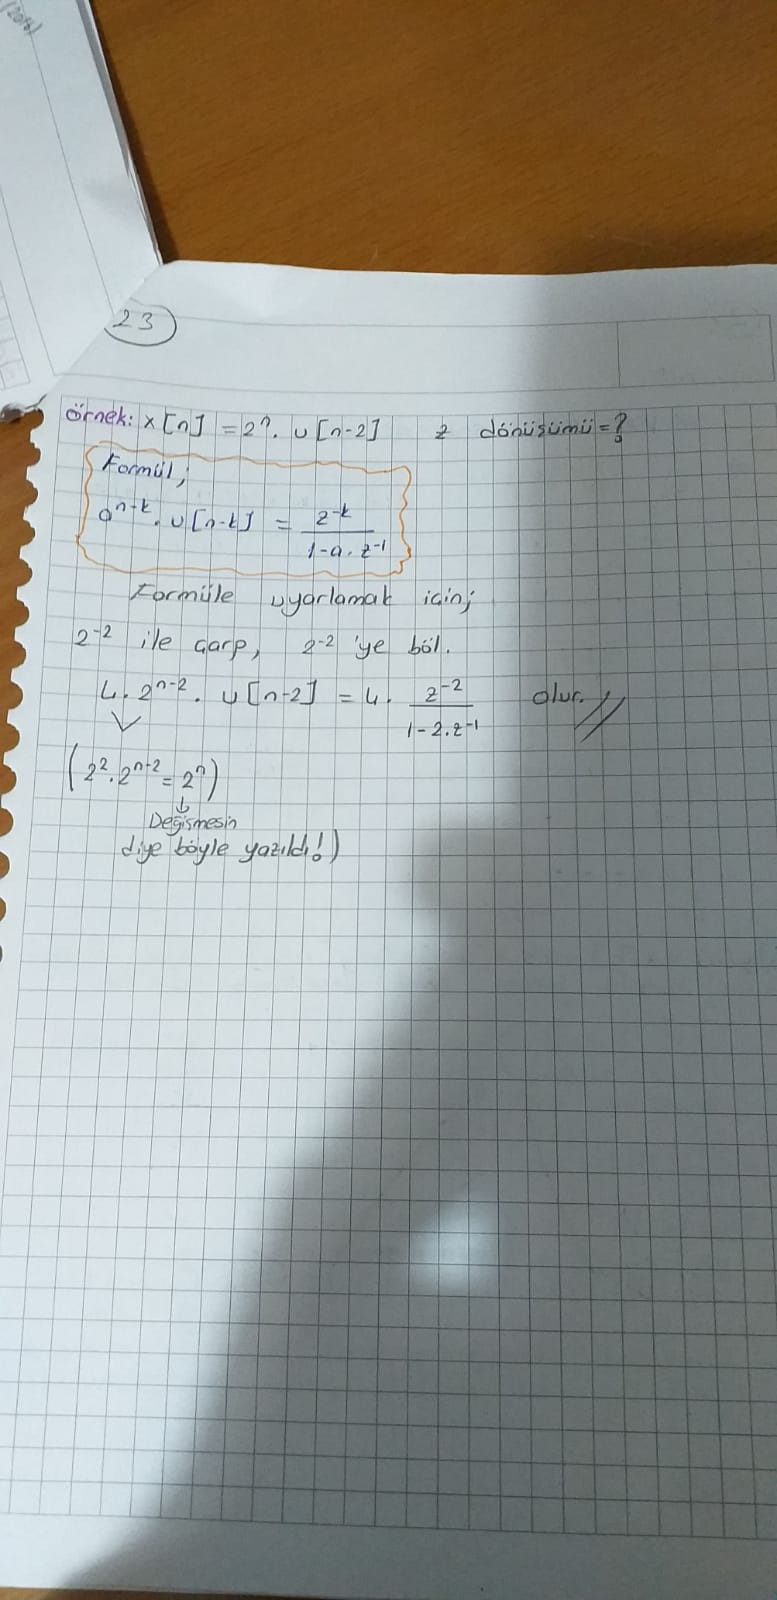 23
Örnek: x[n] = 2ⁿ. u[n-2] z dönüşümü=?
Formül;
aⁿ⁻ᵏ. u[n-k] = z⁻ᵏ / 1-a.z⁻¹
Formüle uyarlamak için;
2⁻² ile çarp, 2⁻² 'ye böl.
4. 2ⁿ⁻². u[n-2] = 4. z⁻² / 1-2.z⁻¹ olur.
(2². 2ⁿ⁻² = 2ⁿ)
↓
Değişmesin
diye böyle yazıldı!)